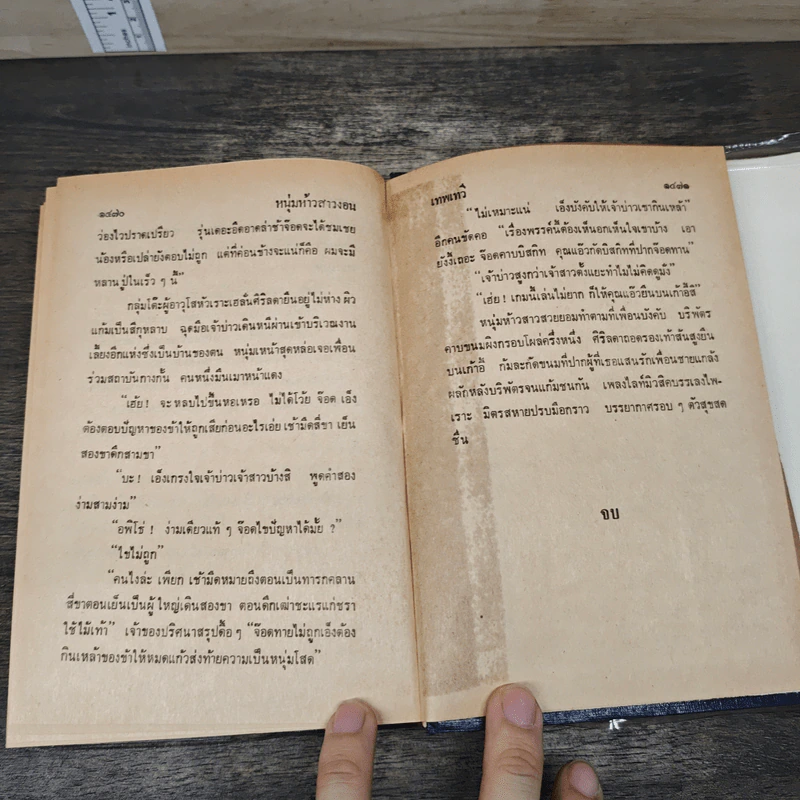 ๑๔๗๐
หนุ่มห้าวสาวงอน
ว่องไวปราดเปรียว รุ่นเดอะอิดอาดล่าช้าจ๊อดจะได้ชมเชย
น้องหรือเปล่ายังตอบไม่ถูก แต่ที่ค่อนข้างจะแน่ก็คือ ผมจะมี
หลานปู่ในเร็ว ๆ นี้”
กลุ่มโต๊ะผู้อาวุโสหัวเราะเฮลั่นศิริลดายืนอยู่ไม่ห่าง ผิว
แก้มเป็นสีกุหลาบ ฉุดมือเจ้าบ่าวเดินหนีผ่านเข้าบริเวณงาน
เลี้ยงอีกแห่งซึ่งเป็นบ้านของตน หนุ่มเหน้าสุดหล่อเจอเพื่อน
ร่วมสถาบันกางกั้น คนหนึ่งมึนเมาหน้าแดง
“เฮ้ย! จะ หลบไปขึ้นหอเหรอ ไม่ได้โว้ย จ๊อด เอ็ง
ต้องตอบปัญหาของข้าให้ถูกเสียก่อนอะไรเอ่ย เช้ามืดสี่ขา เย็น
สองขาดึกสามขา”
“บะ! เอ็งเกรงใจเจ้าบ่าวเจ้าสาวบ้างสิ พูดคำสอง
ง่ามสามง่าม”
“อพิโธ่! ง่ามเดียวแท้ ๆ จ๊อดไขปัญหาได้มั้ย ?”
“ไขไม่ถูก”
“คนไงล่ะ เพียก เช้ามืดหมายถึงตอนเป็นทารกคลาน
สี่ขาตอนเย็นเป็นผู้ใหญ่เดินสองขา ตอนดึกเฒ่าชะแรแก่ชรา
ใช้ไม้เท้า” เจ้าของปริศนาสรุปตื้อ ๆ “จ๊อดทายไม่ถูกเอ็งต้อง
กินเหล้าของข้าให้หมดแก้วส่งท้ายความเป็นหนุ่มโสด”
เทพเทวี
๑๔๗๑
“ไม่เหมาะแน่ เอ็งบังคับให้เจ้าบ่าวเขากินเหล้า”
อีกคนขัดคอ “เรื่องพรรค์นี้ต้องเห็นอกเห็นใจเขาบ้าง เอา
ยังงี้เถอะ จ๊อดคาบบิสกิท คุณแอ๊วกัดบิสกิทที่ปากจ๊อดทาน”
“เจ้าบ่าวสูงกว่าเจ้าสาวตั้งแยะทำไมไม่คิดดูมั่ง”
“เฮ้ย! เกมนี้เล่นไม่ยาก ก็ให้คุณแอ๊วยืนบนเก้าอี้สิ”
หนุ่มห้าวสาวสวยยอมทำตามที่เพื่อนบังคับ บริพัตร
คาบขนมผิงกรอบโผล่ครึ่งหนึ่ง ศิริลดาถอดรองเท้าส้นสูงยืน
บนเก้าอี้ ก้มละกัดขนมที่ปากผู้ที่เธอแสนรักเพื่อนชายแกล้ง
ผลักหลังบริพัตรจนแก้มชนกัน เพลงไลท์มิวสิคบรรเลงไพ-
เราะ มิตรสหายปรบมือกราว บรรยากาศรอบ ๆ ตัวสุขสด
ชื่น
จบ